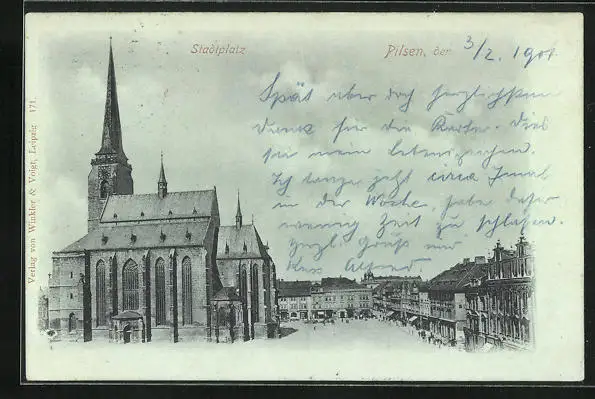 Stadtplatz
Pilsen, der 3/2. 1901
Spät aber doch herzlichsten
Dank für die Karte. Dies
sei mein Lebenszeichen.
Ich tanze jetzt circa 3mal
in der Woche, habe daher
wenig Zeit zu schlafen.
Herzl. Gruß
Verlag von Winkler & Voigt, Leipzig 171.